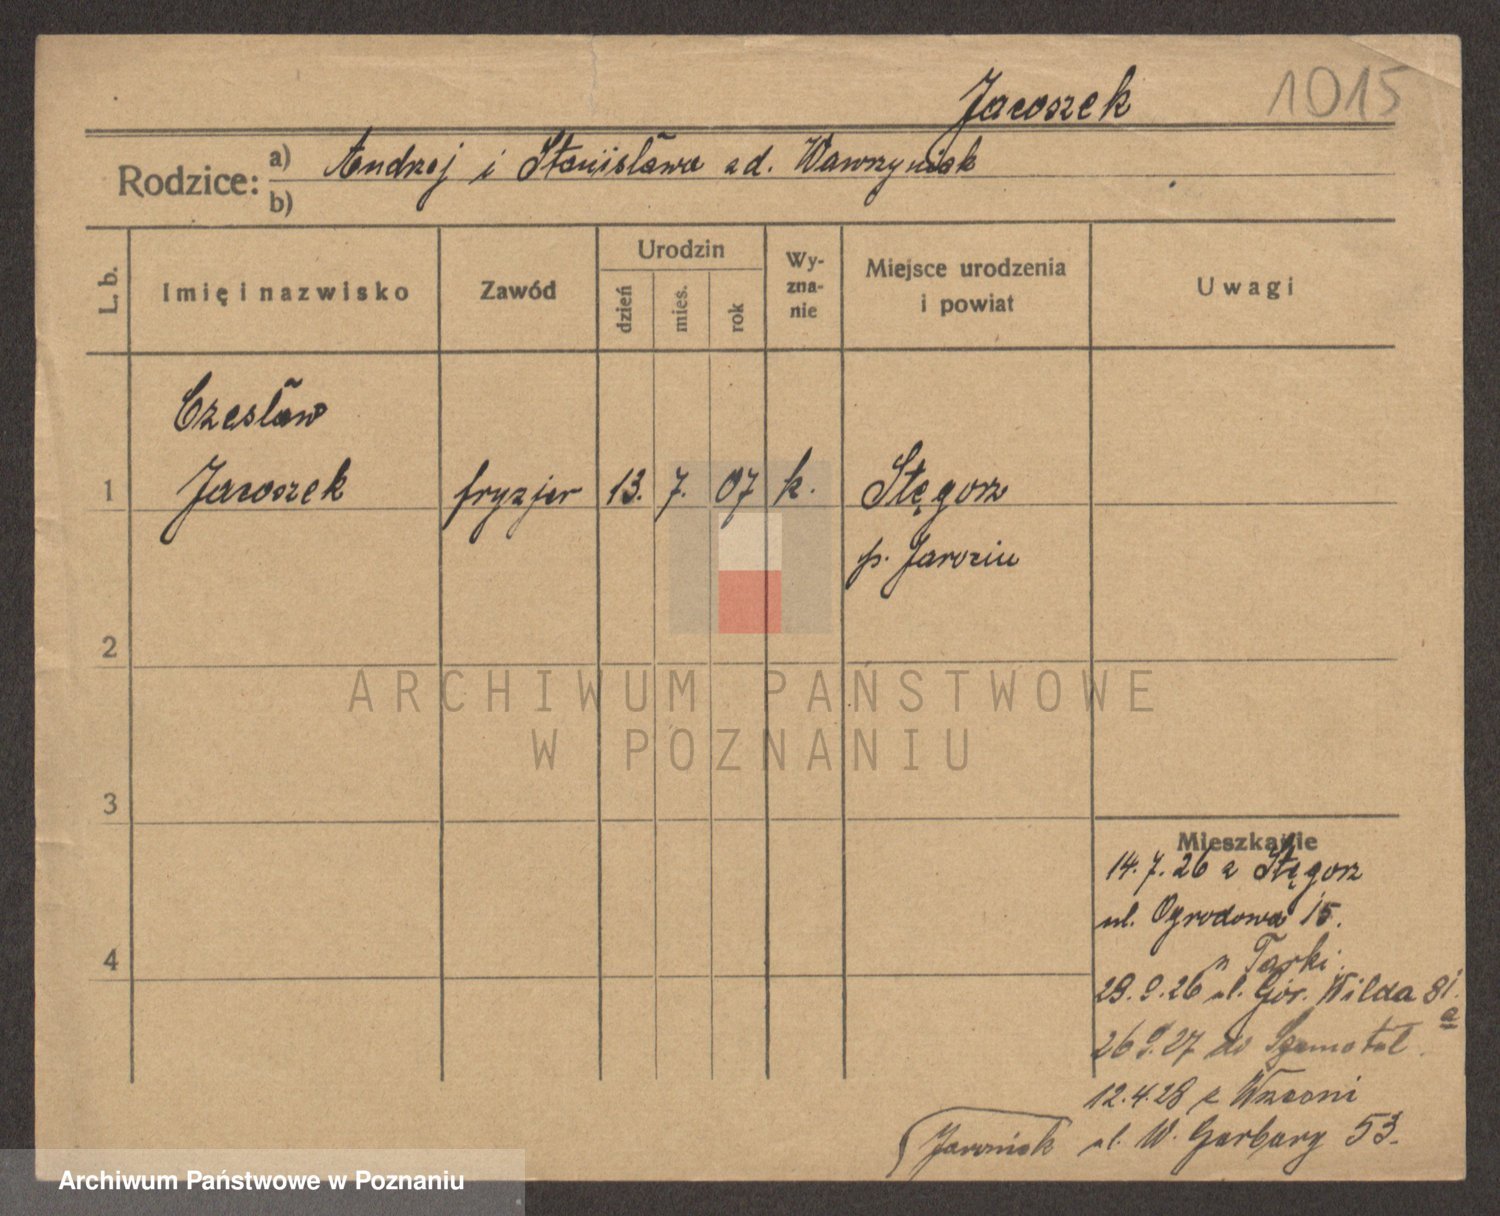 Jaroszek
1015
Rodzice: a) Andrzej i Stanisława zd. Wawrzyniak
b)
L. b. Imię i nazwisko Zawód Urodzin dzień mieś. rok Wy-zna-nie Miejsce urodzenia i powiat Uwagi
Czesław
1 Jaroszek fryzjer 13. 7. 07 k. Stęgosz
p. Jarocin
2
ARCHIWUM PAŃSTWOWE
W POZNANIU
3
Mieszkanie
14.7.26 z Stęgosz
ul. Ogrodowa 15.
u Tarki.
4
29.9.26 ul. Gór. Wilda 81.
a
26.9.27 do Szamotuł.
12.4.28 z Wrześni
ul. W. Garbary 53.
Archiwum Państwowe w Poznaniu